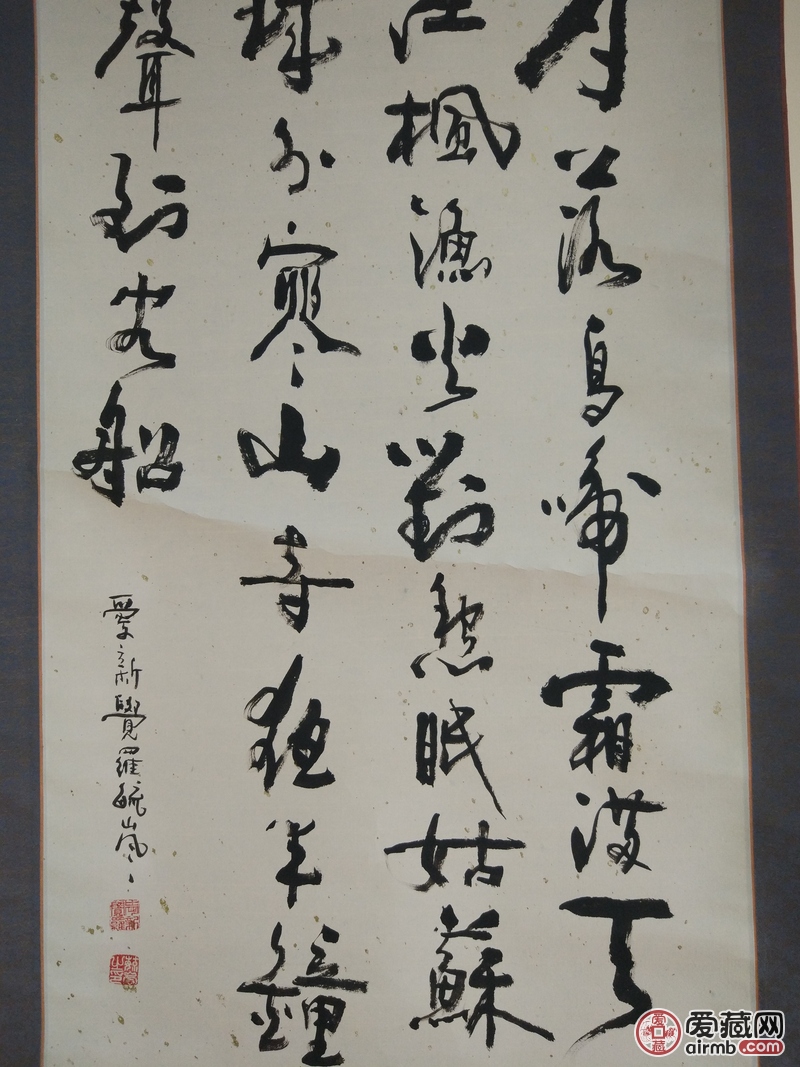 月落烏啼霜滿天
江楓漁火對愁眠姑蘇
城外寒山寺夜半鐘
聲到客船
愛新覺羅毓嵐
爱藏网
airmb.com